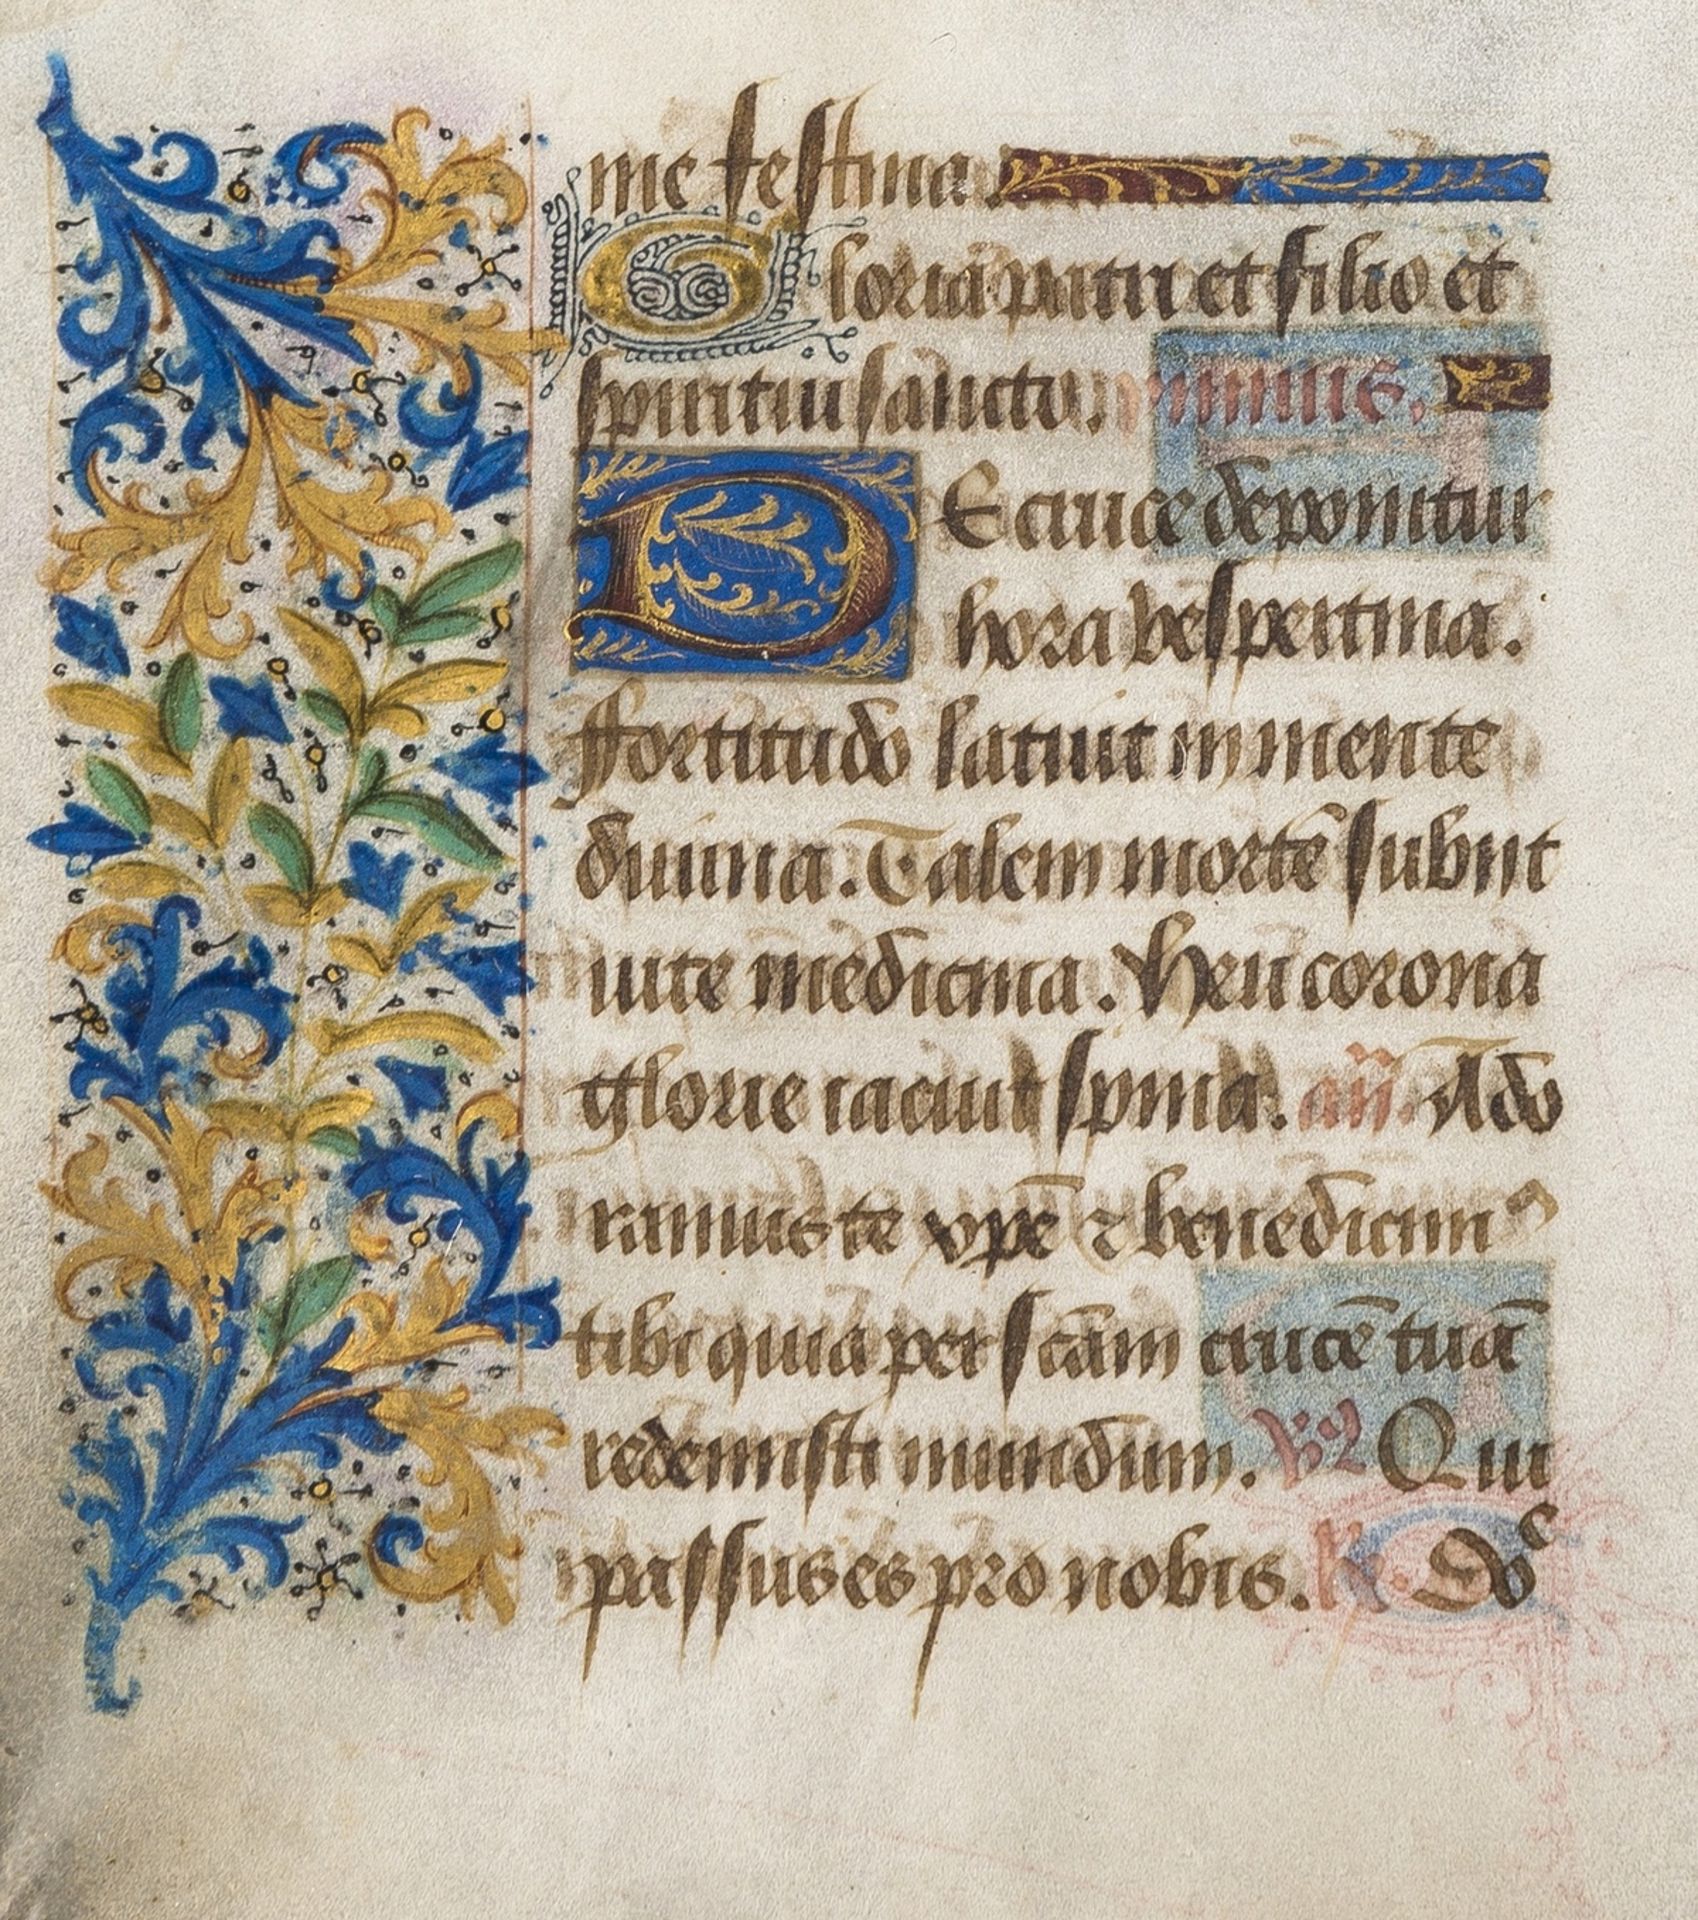 me festina.
Gloria patri et filio et
spiritui sancto. ymnus.
DE cruce deponitur
hora vespertina.
ffortitudo latuit in mente
diuina. Talem mortē subiit
uite medicina. Heu corona
glorie iacuit spina. añ. Ado
ramus te xp̄e ⁊ benedicimꝰ
tibi quia per scām crucē tuā
redemisti mundum. v̓ꝫ Qui
passus es pro nobis. R. Dōc